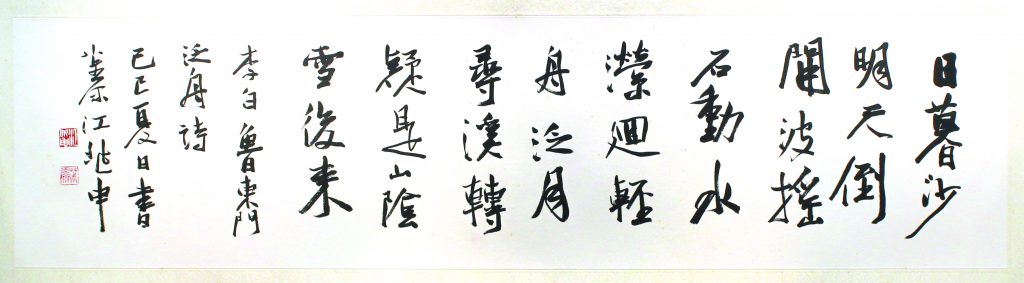 日暮沙
明天倒
開波搖
石動水
瀠廻輕
舟泛月
尋溪轉
疑是山陰
雪後来
李白魯東門
泛舟詩
己巳夏日書
茮原江兆申